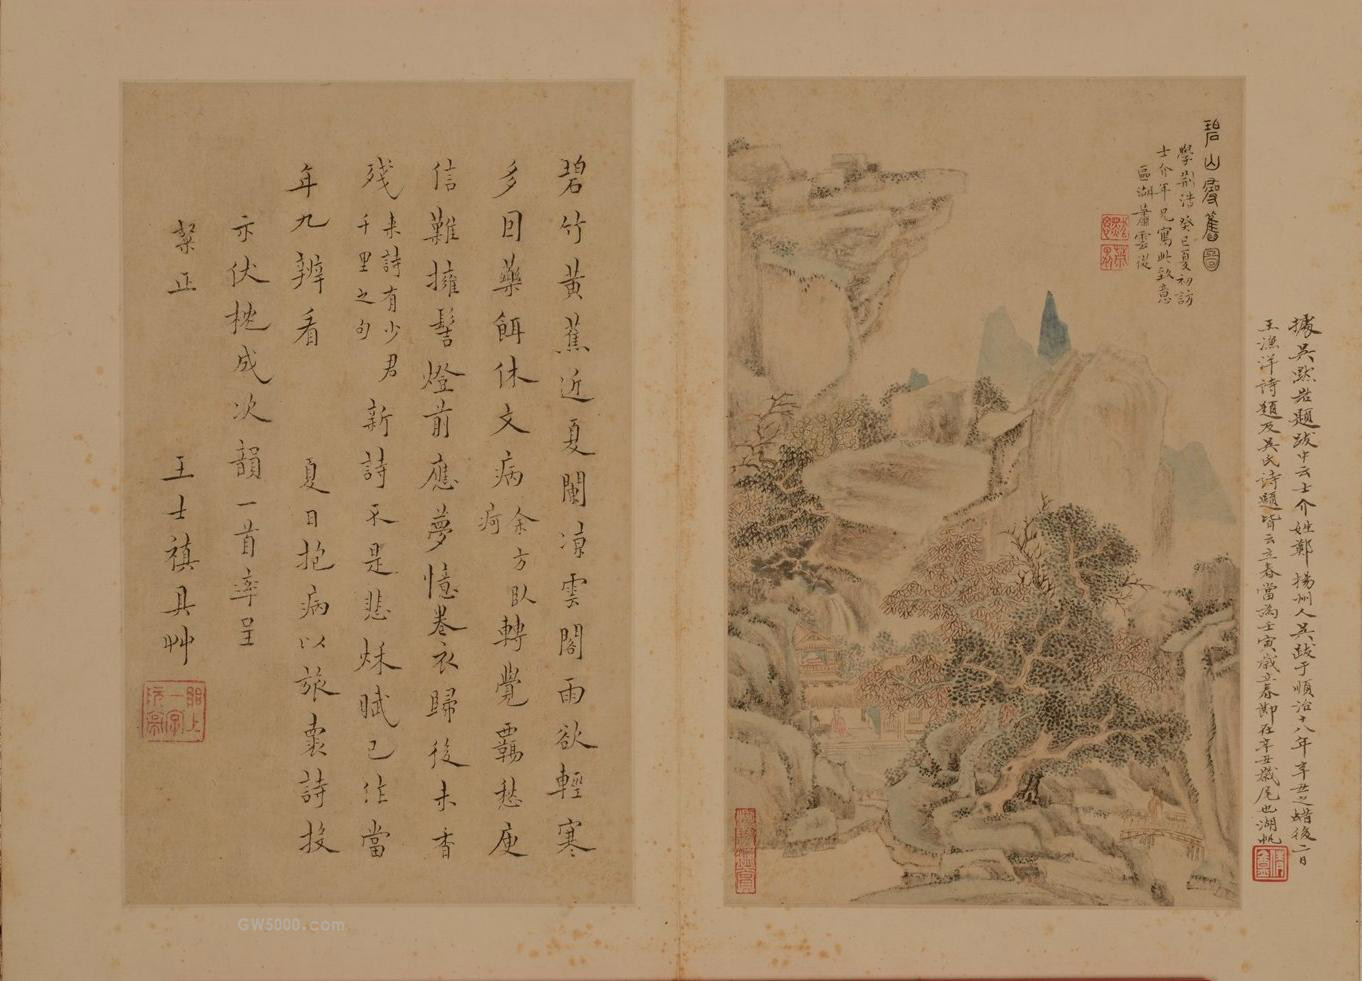 碧山尋舊圖
學荊浩癸巳夏初訪
士介年兄寫此致意
區湖蕭雲從
據吳默岩題跋中云士介姓鄭揚州人吳跋于順治十八年辛丑之蜡後二日
王漁洋詩題及吳氏詩題皆云立春當為壬寅歲立春即在辛丑歲尾也湖帆
碧竹黃蕉近夏闌涼雲閣雨欲輕寒
多因藥餌休文病余方臥疴轉覺羈愁庾
信難擁髻燈前應夢憶卷衣歸後未香
殘來詩有少君千里之句新詩不是悲秋賦已作當
年九辨看 夏日抱病以旅裏詩投
示伏枕成次韻一首率呈
粲正 王士禛具艸